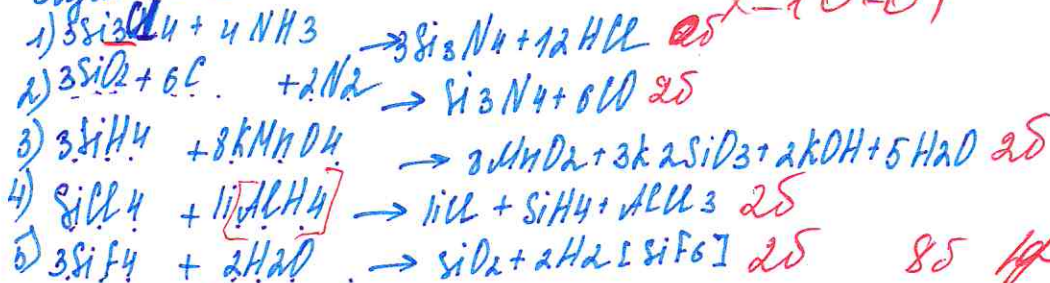 1) 3Si3Cl4 + 4NH3 → 3Si3N4 + 12HCl 0б
2) 3SiO2 + 6C + 2N2 → Si3N4 + 6CO 2б
3) 3SiH4 + 8KMnO4 → 8MnO2 + 3K2SiO3 + 2KOH + 5H2O 2б
4) SiCl4 + li[AlH4] → liCl + SiH4 + AlCl3 2б
5) 3SiF4 + 2H2O → SiO2 + 2H2[SiF6] 2б 8б